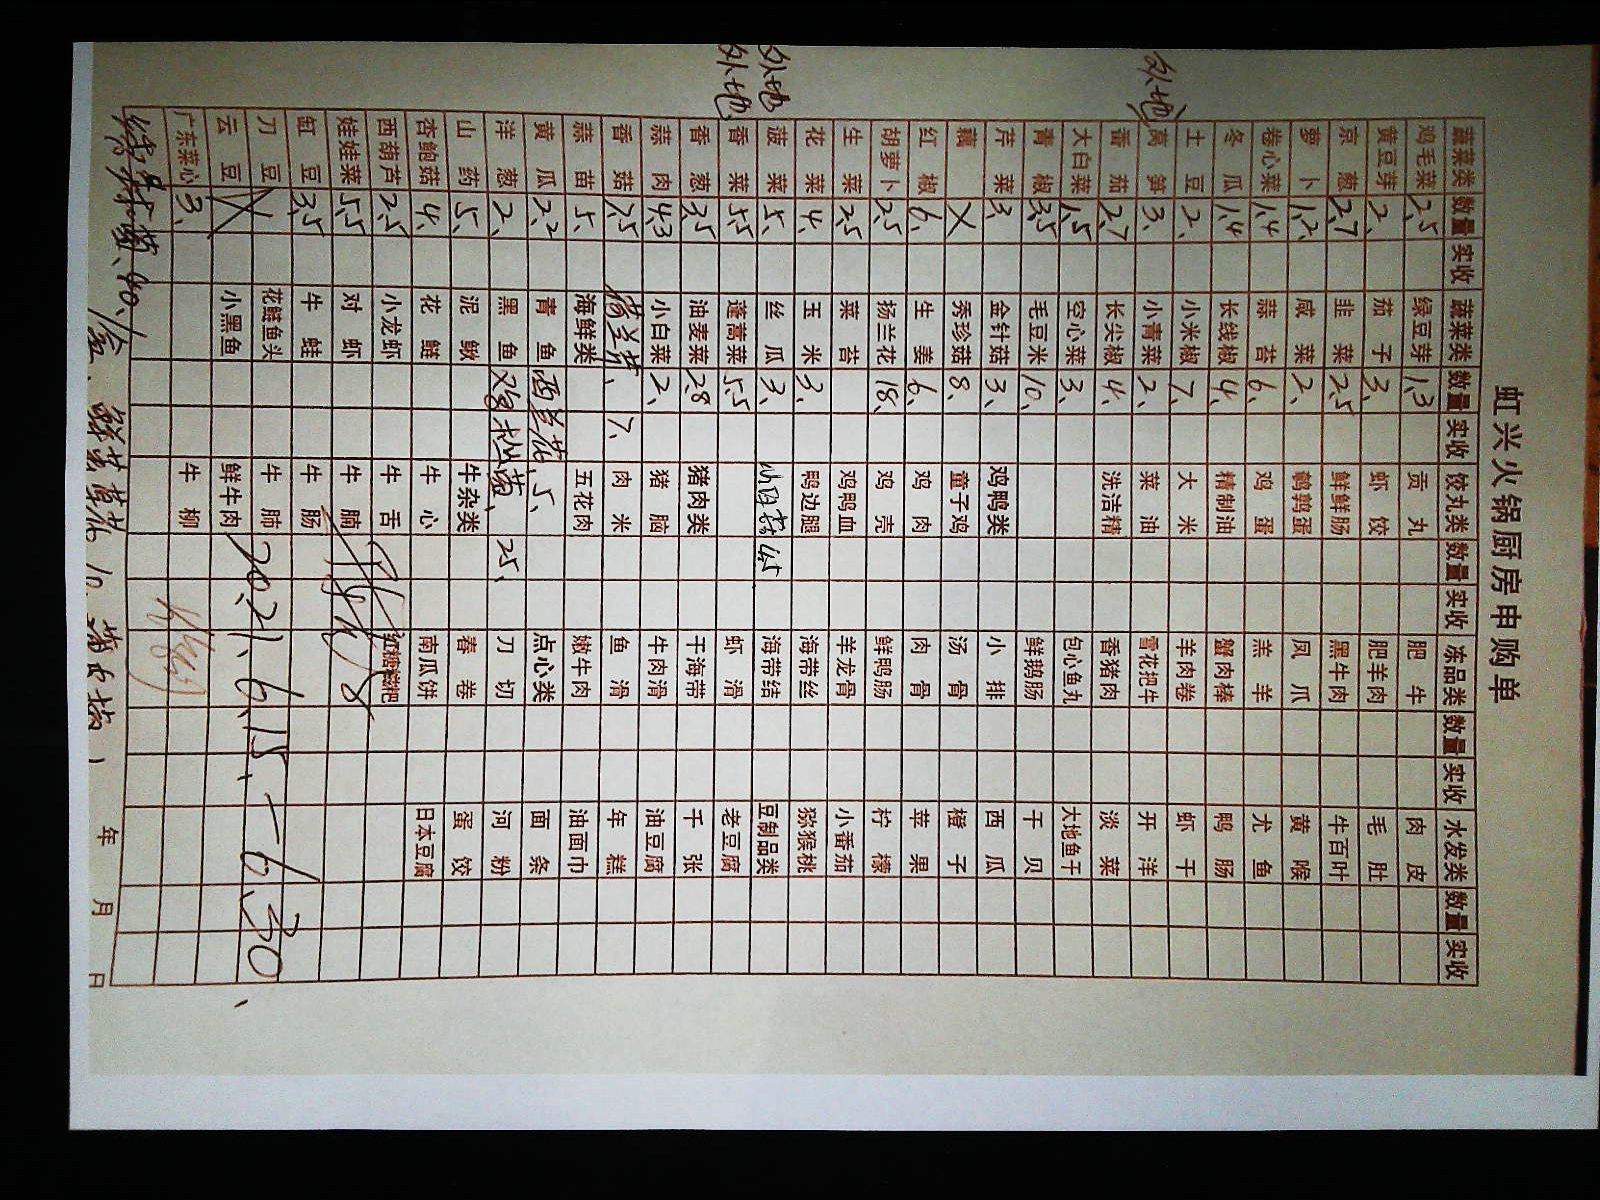 虹兴火锅厨房申购单
蔬菜类 数量 实收 蔬菜类 数量 实收 饺丸类 数量 实收 冻品类 数量 实收 水发类 数量 实收
鸡毛菜 2.5 绿豆芽 1.3 贡丸 肥牛 肉皮
黄豆芽 2、 茄子 3、 虾饺 肥羊肉 毛肚
京葱 2.7 韭菜 2.5 鲜鲜肠 黑牛肉 牛百叶
萝卜 1.2、 咸菜 2、 鹌鹑蛋 凤爪 黄喉
卷心菜 1.4 蒜苔 6、 鸡蛋 羔羊 尤鱼
冬瓜 1.4 长线椒 4、 精制油 蟹肉棒 鸭肠
土豆 2、 小米椒 7、 大米 羊肉卷 虾干
外地 莴笋 3、 小青菜 2、 菜油 雪花把牛 开洋
番茄 2.7 长尖椒 4、 洗洁精 香猪肉 淡菜
大白菜 1.5 空心菜 3、 包心鱼丸 大地鱼干
青椒 3.5 毛豆米 10、 鲜鹅肠 干贝
芹菜 3、 金针菇 3、 鸡鸭类 小排 西瓜
藕 X 秀珍菇 8、 童子鸡 汤骨 橙子
红椒 6、 生姜 6、 鸡肉 肉骨 苹果
胡萝卜 2.5 扬兰花 18、 鸡壳 鲜鸭肠 柠檬
生菜 2.5 菜苔 鸡鸭血 羊龙骨 小番茄
花菜 4、 玉米 3、 鸭边腿 海带丝 猕猴桃
外地 菠菜 5、 丝瓜 3、 4.5 海带结 豆制品类
外地 香菜 5.5 蓬蒿菜 5.5 虾滑 老豆腐
香葱 3.5 油麦菜 2.8 猪肉类 干海带 千张
蒜肉 4.3 小白菜 2、 猪脑 牛肉滑 油豆腐
香菇 7.5 7、 肉米 鱼滑 年糕
蒜苗 5、 海鲜类 五花肉 嫩牛肉 油面巾
黄瓜 2.2 青鱼 西兰花、5、 点心类 面条
洋葱 2、 黑鱼 25、 刀切 河粉
山药 5、 泥鳅 牛杂类 春卷 蛋饺
杏鲍菇 4、 花鲢 牛心 南瓜饼 日本豆腐
西葫芦 2.5 小龙虾 牛舌 红糖糍粑
娃娃菜 5.5 对虾 牛腩
缸豆 3.5 牛蛙 牛肠
刀豆 X 花鲢鱼头 牛肺
云豆 X 小黑鱼 鲜牛肉 2021、6、15、-6、30、
广东菜心 3、 牛柳
年 月 日